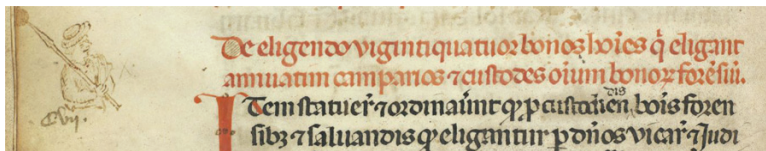 De eligendo vigintiquatuor bonos hoı̃es q̃ eligant
annuatim camparios ⁊ custodes oı̃um bonoꝝ forẽsiũ.
Item statuer̃t ⁊ ordinauerũt ꝙ p custodien dis bonis foren
sibꝫ ⁊ saluandis ꝙ eligantur p dños vicar̃ ⁊ Judi